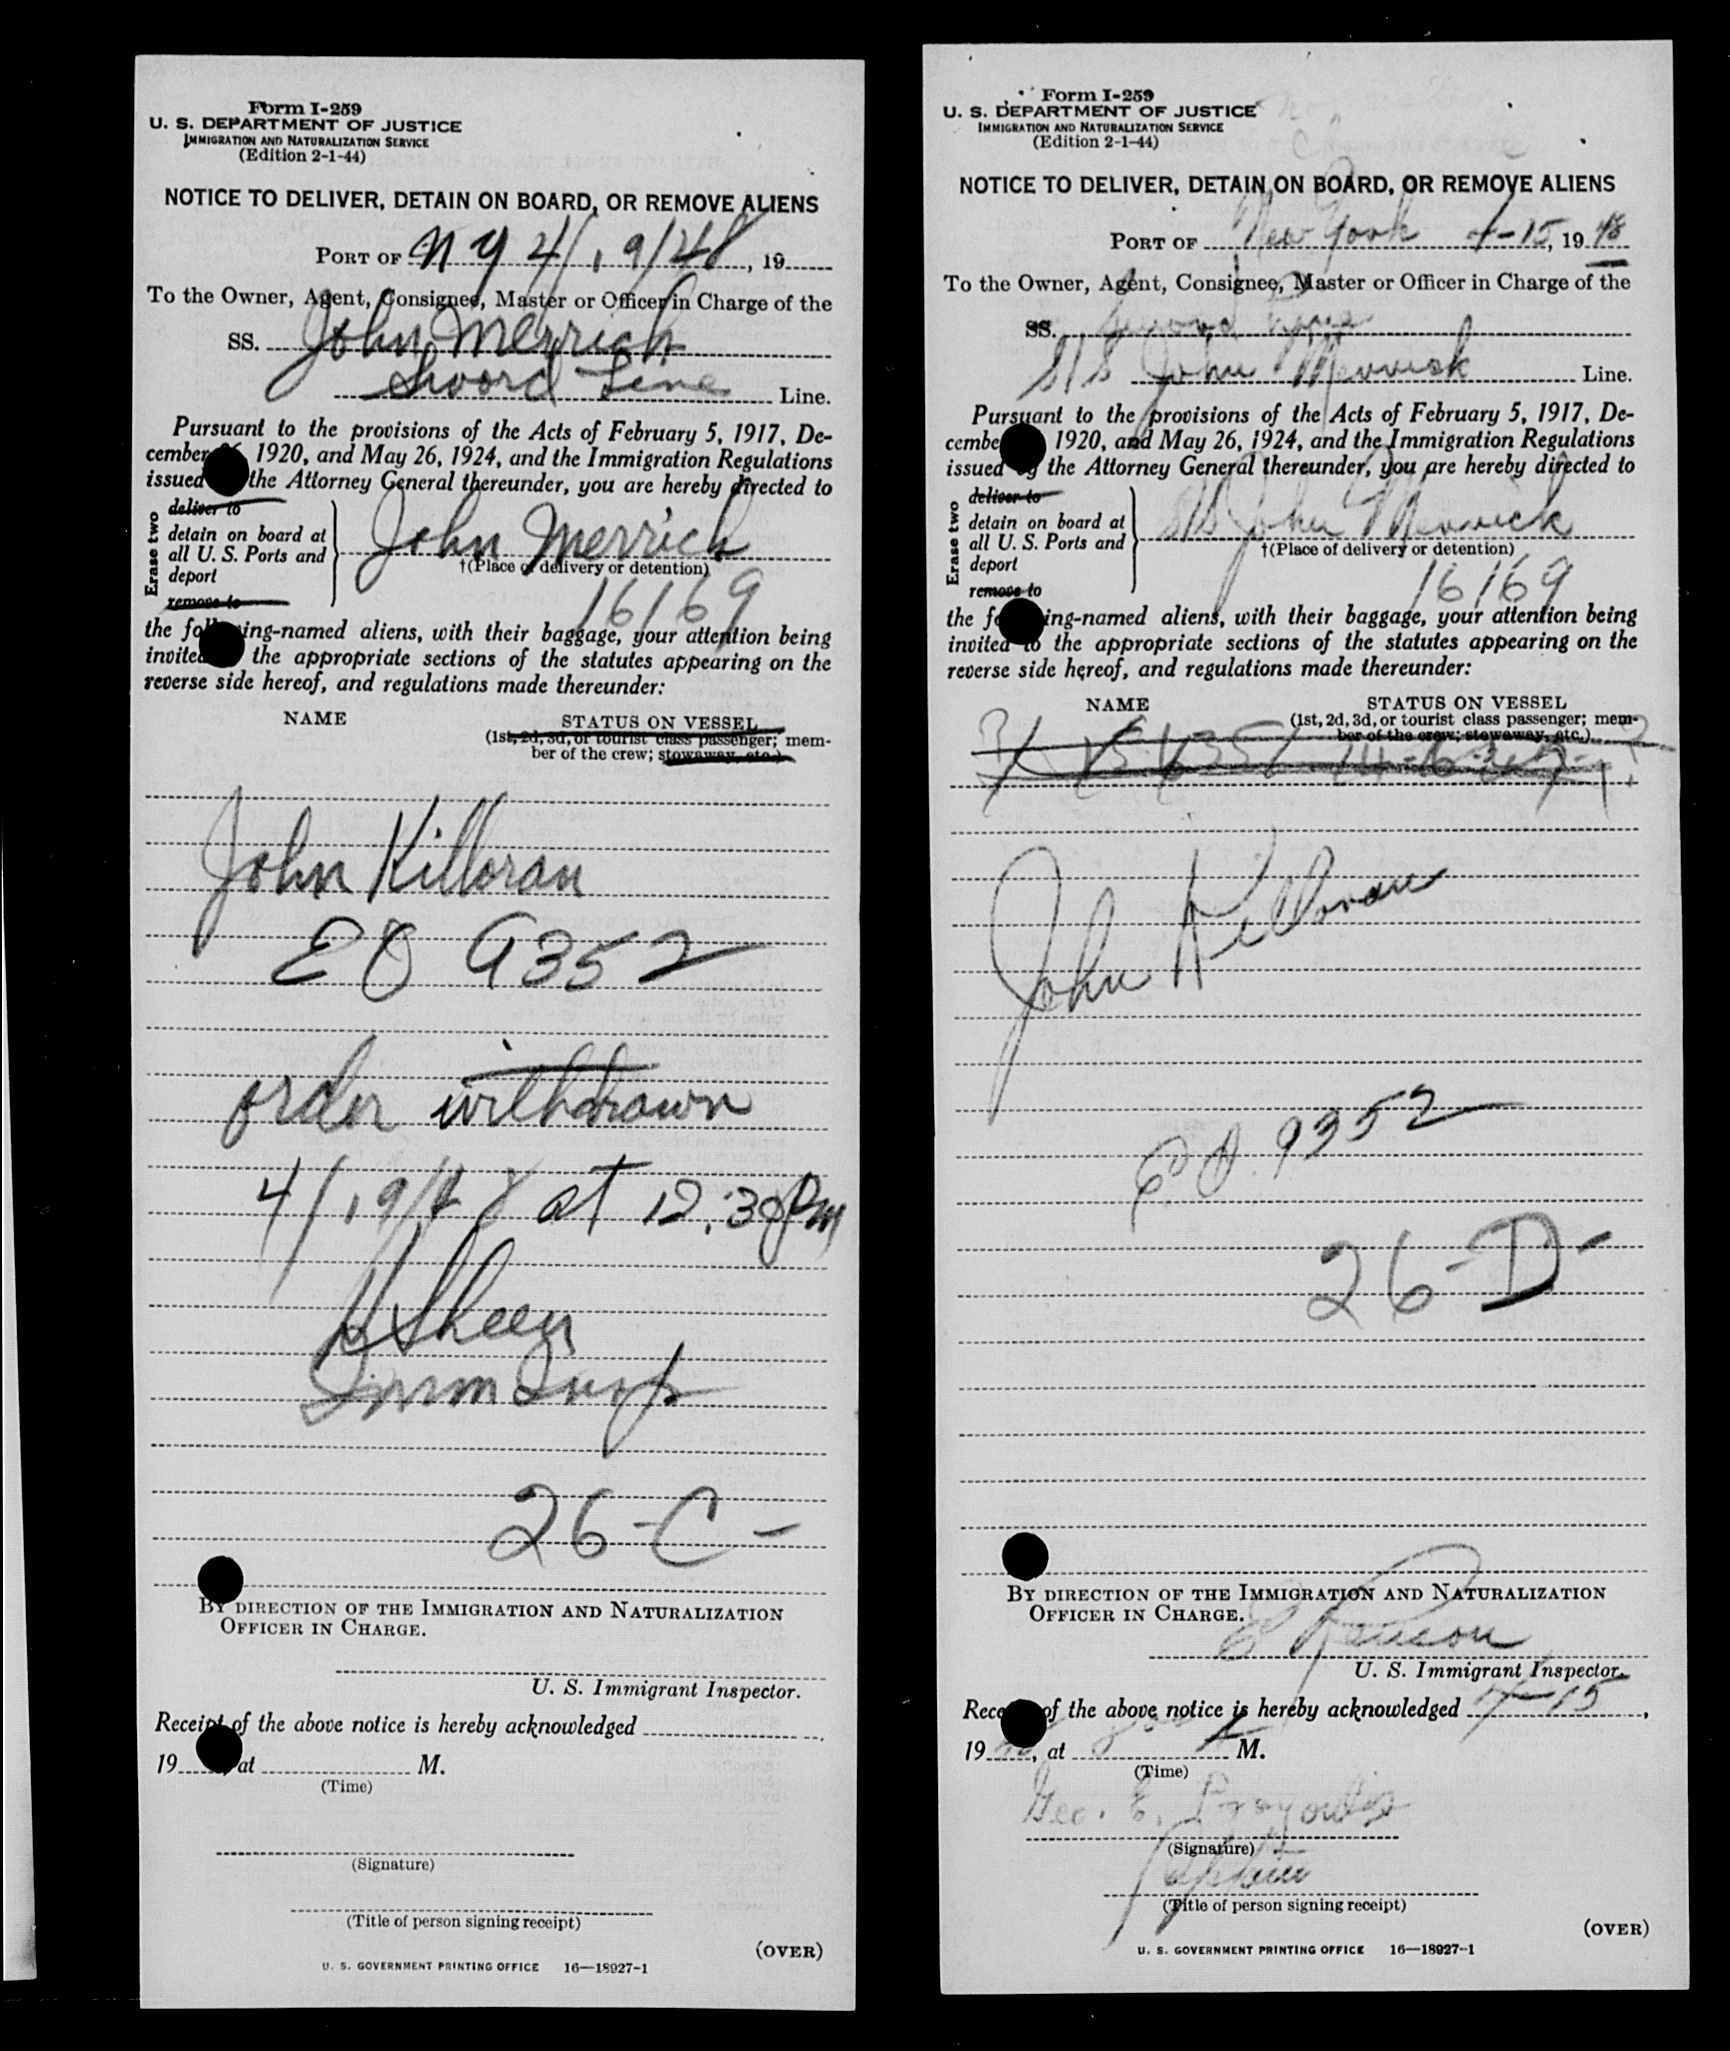 Form I-259
U. S. DEPARTMENT OF JUSTICE
IMMIGRATION AND NATURALIZATION SERVICE
(Edition 2-1-44)
NOTICE TO DELIVER, DETAIN ON BOARD, OR REMOVE ALIENS
PORT OF N Y 4/19/48, 19
To the Owner, Agent, Consignee, Master or Officer in Charge of the
SS. John Merrick
Sword Line Line.
Pursuant to the provisions of the Acts of February 5, 1917, De-
cember 26, 1920, and May 26, 1924, and the Immigration Regulations
issued the Attorney General thereunder, you are hereby directed to
Erase two
deliver to
detain on board at
all U. S. Ports and
deport
remove to
John Merrick
†(Place of delivery or detention)
16169
the following-named aliens, with their baggage, your attention being
invited the appropriate sections of the statutes appearing on the
reverse side hereof, and regulations made thereunder:
NAME STATUS ON VESSEL
(1st, 2d, 3d, or tourist class passenger; mem-
ber of the crew; stowaway, etc.)
John Killoran
EO 9352
order withdrawn
4/19/48 at 12:30 PM
Sheen
Imm Insp
26-C-
BY DIRECTION OF THE IMMIGRATION AND NATURALIZATION
OFFICER IN CHARGE.
U. S. Immigrant Inspector.
Receipt of the above notice is hereby acknowledged
19 , at M.
(Time)
(Signature)
(Title of person signing receipt)
(OVER)
U. S. GOVERNMENT PRINTING OFFICE 16—18927-1
Form I-259
U. S. DEPARTMENT OF JUSTICE
IMMIGRATION AND NATURALIZATION SERVICE
(Edition 2-1-44)
NOTICE TO DELIVER, DETAIN ON BOARD, OR REMOVE ALIENS
PORT OF New York 4-15, 1948
To the Owner, Agent, Consignee, Master or Officer in Charge of the
SS.
S/S John Merrick Line.
Pursuant to the provisions of the Acts of February 5, 1917, De-
cember 1920, and May 26, 1924, and the Immigration Regulations
issued by the Attorney General thereunder, you are hereby directed to
Erase two
deliver to
detain on board at
all U. S. Ports and
deport
remove to
S/S John Merrick
†(Place of delivery or detention)
16169
the following-named aliens, with their baggage, your attention being
invited to the appropriate sections of the statutes appearing on the
reverse side hereof, and regulations made thereunder:
NAME STATUS ON VESSEL
(1st, 2d, 3d, or tourist class passenger; mem-
ber of the crew; stowaway, etc.)
John Killoran
E.O. 9352
26-D-
BY DIRECTION OF THE IMMIGRATION AND NATURALIZATION
OFFICER IN CHARGE.
U. S. Immigrant Inspector.
Receipt of the above notice is hereby acknowledged 4-15,
19 , at M.
(Time)
Geo. E.
(Signature)
Captain
(Title of person signing receipt)
(OVER)
U. S. GOVERNMENT PRINTING OFFICE 16—18927-1